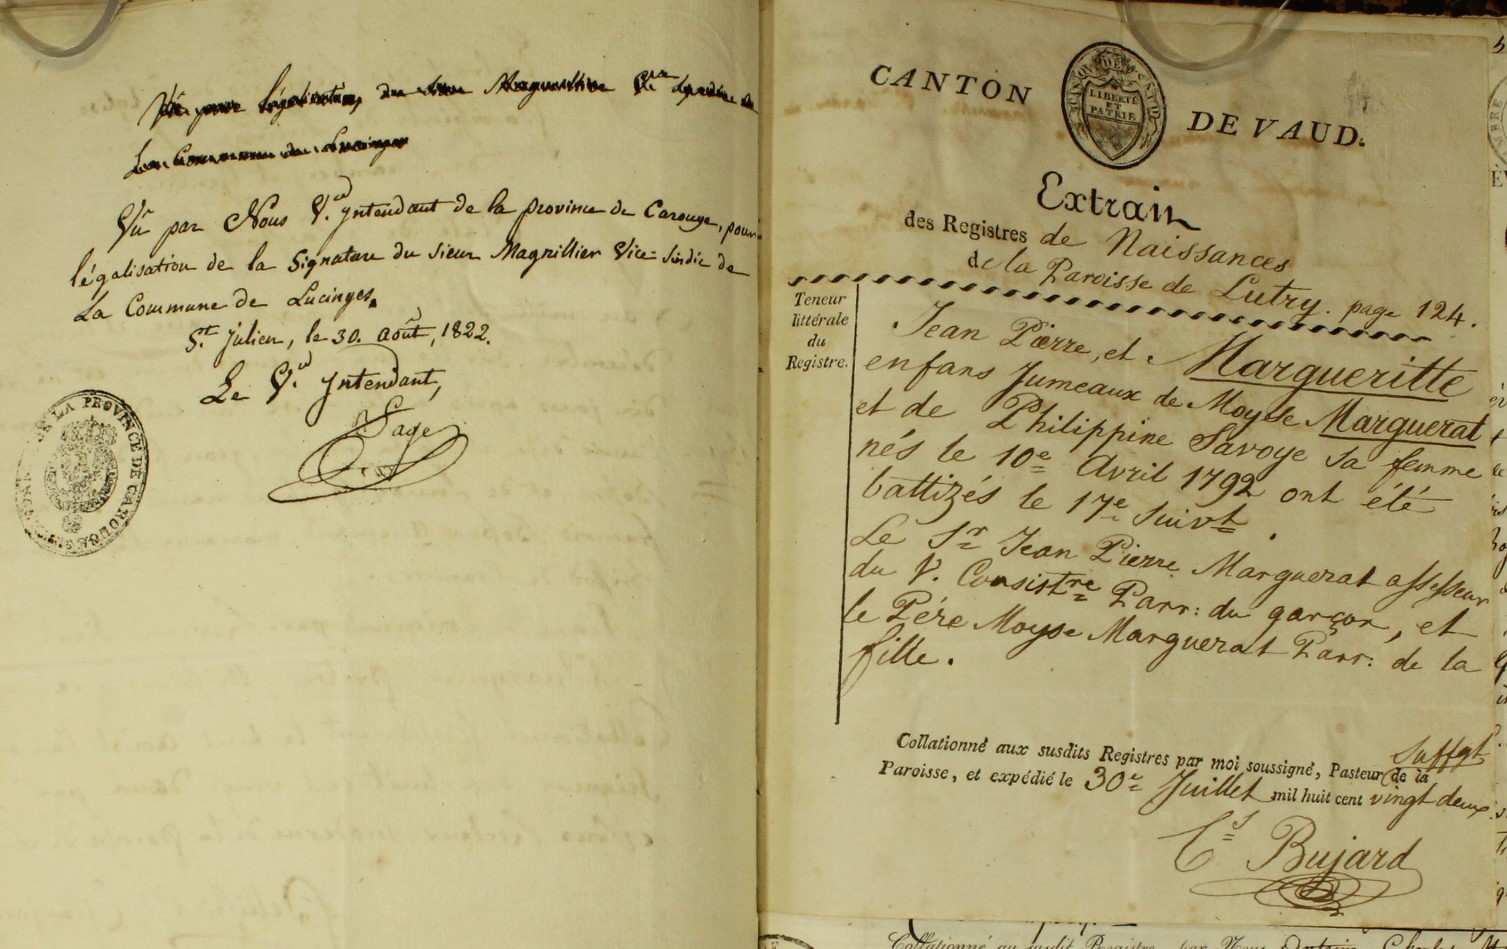 Vû pour légalisation du
La Commune de Lucinges
Vû par Nous V.ce Intendant de la province de Carouge, pour
légalisation de la Signature du sieur Magnillier Vice-Sindic de
La Commune de Lucinges.
St. Julien, le 30. août, 1822.
Le V.ce Intendant,
Sage
DE LA PROVINCE DE CAROUGE
CANTON DE VAUD.
LIBERTÉ
ET
PATRIE
Extrait
des Registres de Naissances
de la Paroisse de Lutry. page 124.
Teneur
littérale
du
Registre.
Jean Pierre, et Margueritte
enfans Jumeaux de Moyse Marguerat
et de Philippine Savoye sa femme
nés le 10e Avril 1792 ont été
battizés le 17e Suivt.
Le Sr Jean Pierre Marguerat assesseur
du V. Consistre Parr: du garçon, et
le Pére Moyse Marguerat Parr: de la
fille.
Collationné aux susdits Registres par moi soussigné, Pasteur suffgt de la
Paroisse, et expédié le 30e Juillet mil huit cent vingt deux.
Cs Bujard